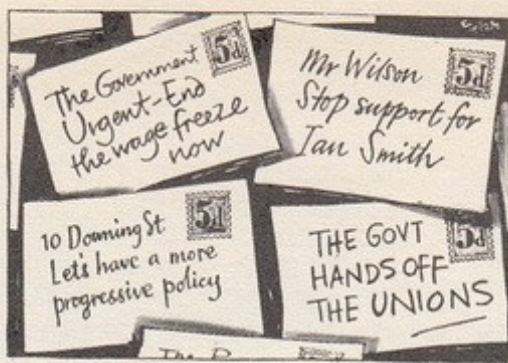 The Government
Urgent-End
the wage freeze
now
5d
Mr Wilson
Stop support for
Ian Smith
5d
10 Downing St
Let's have a more
progressive policy
5d
THE GOVT
HANDS OFF
THE UNIONS
5d